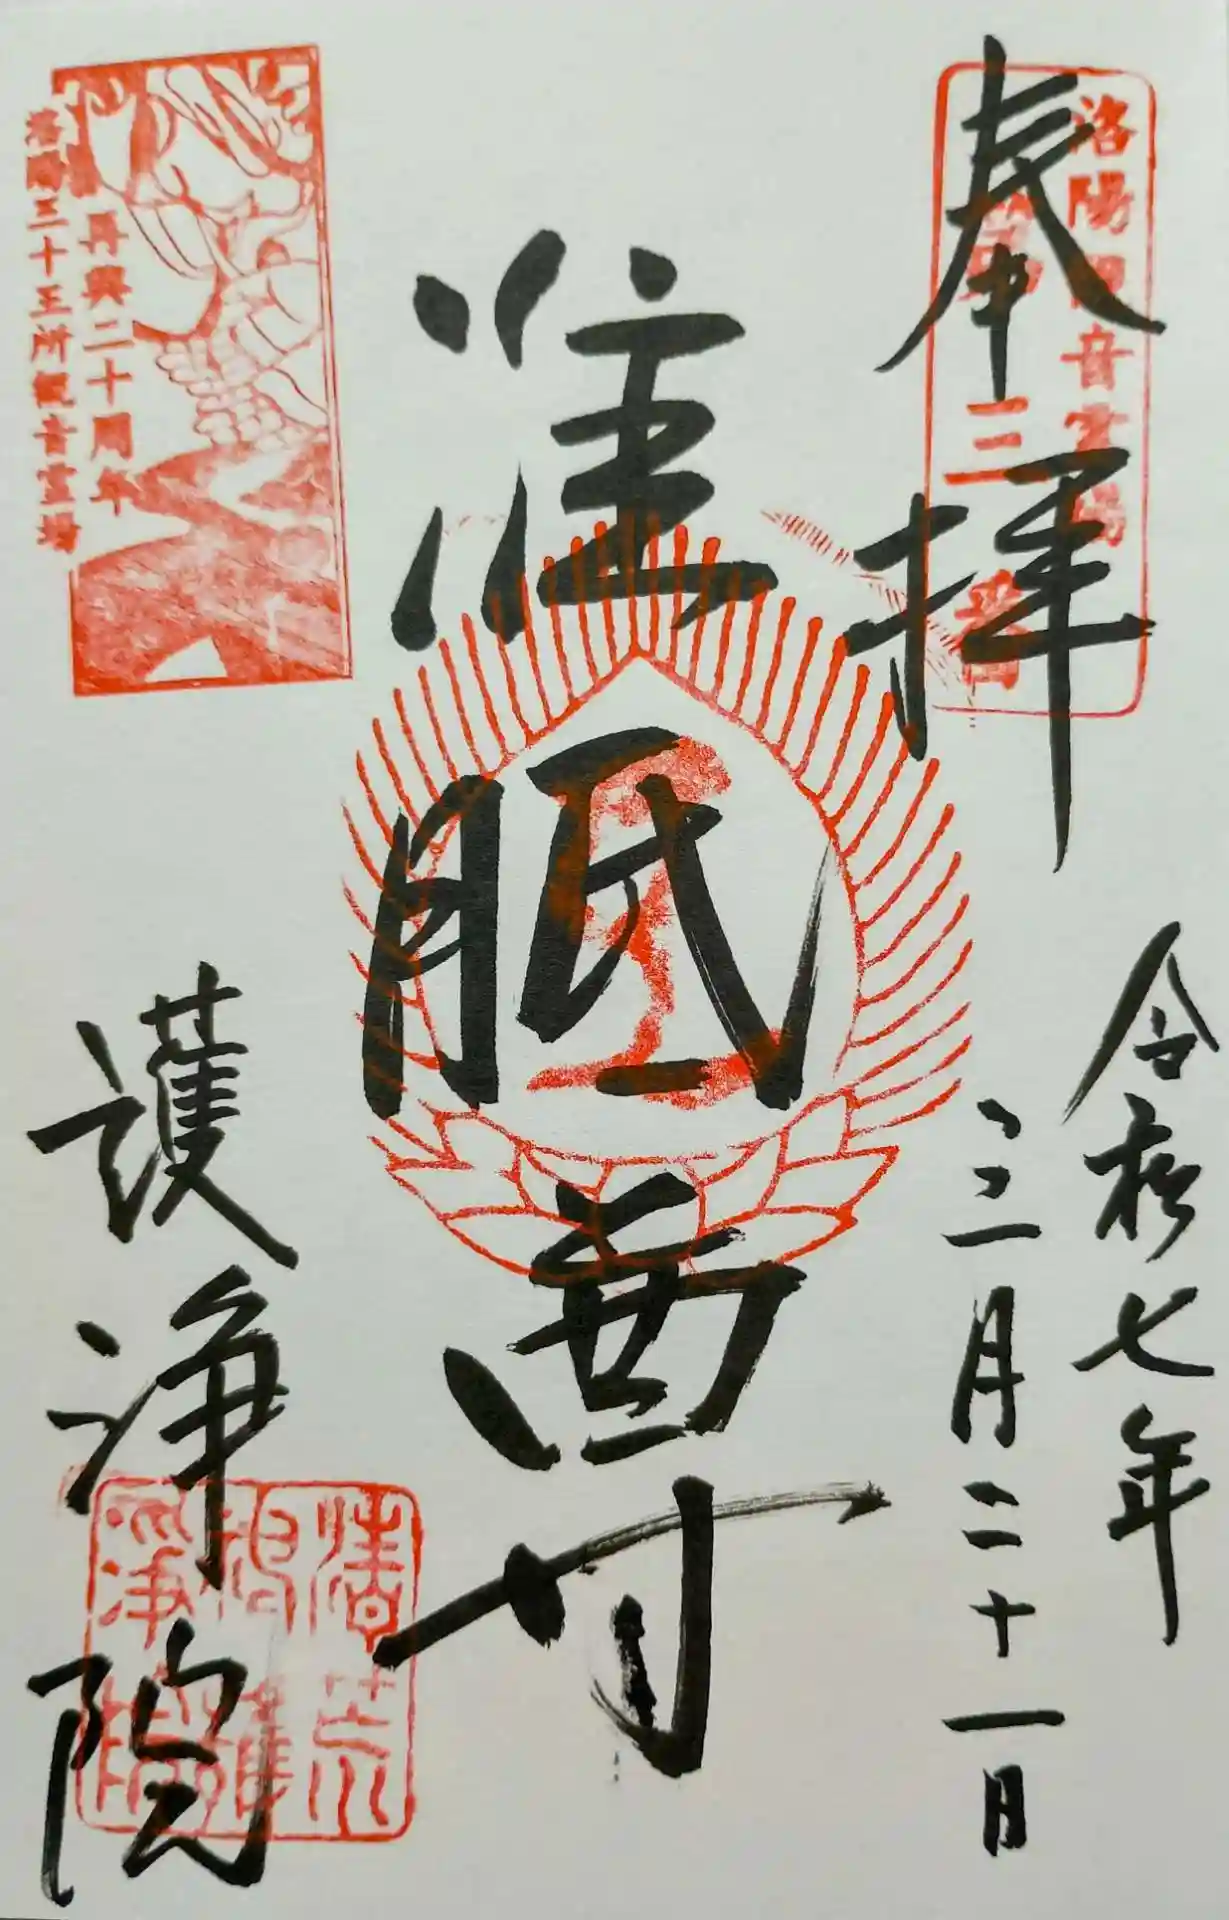 奉拝
洛陽観音霊場
第三番
令和七年
三月二十一日
准胝尊
護浄院
再興二十周年
洛陽三十三所観音霊場
清荒神護浄院